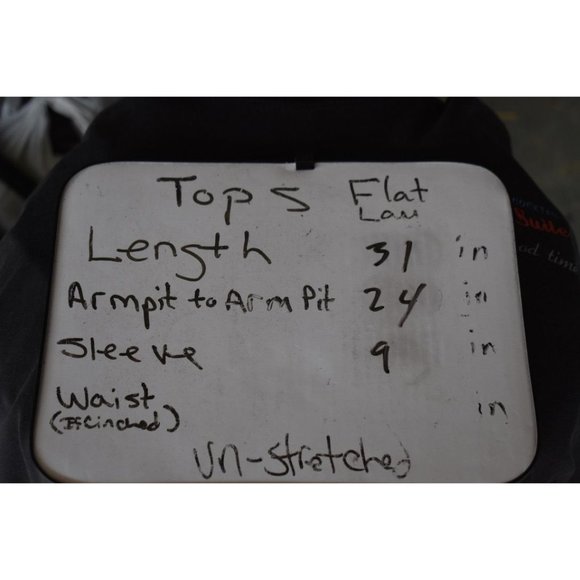 Tops Flat
Lay
Length 31 in
Armpit to Arm Pit 24 in
Sleeve 9 in
Waist in
(If Cinched)
Un-stretched